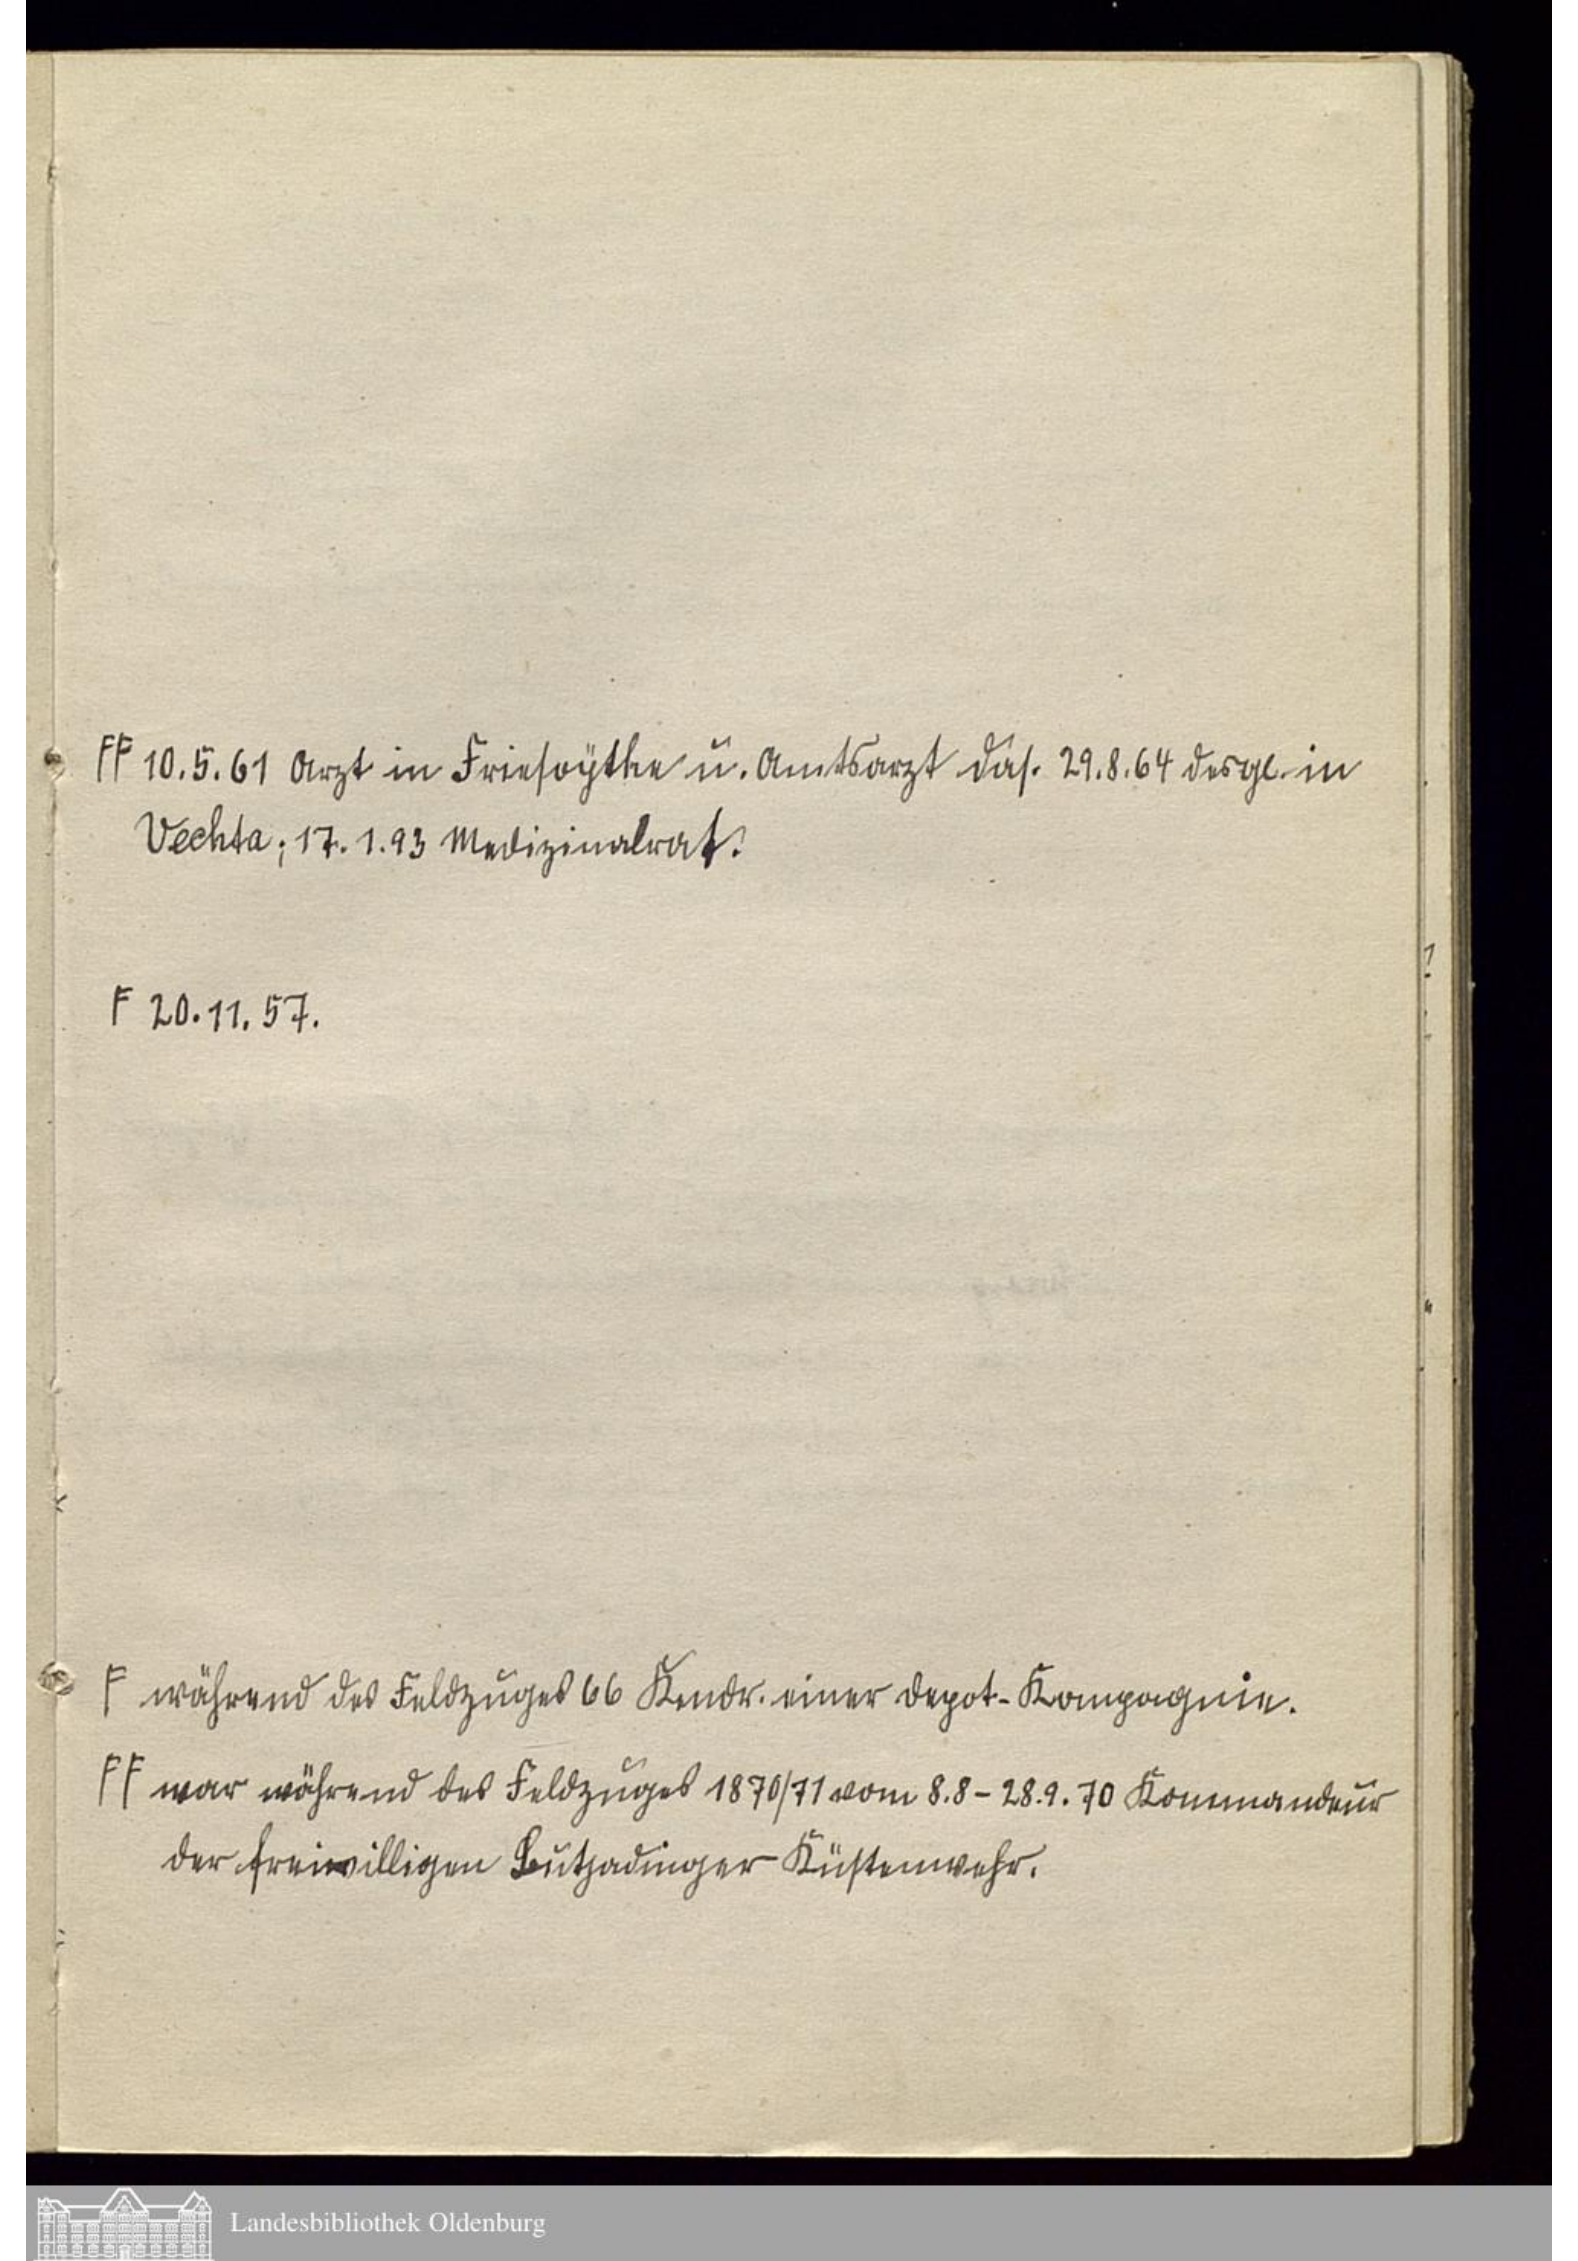 FF 10.5.61 Arzt in Friesoythe u. Amtsarzt das. 29.8.64 desgl. in
Vechta; 17.1.93 Medizinalrat.
F 20.11.57.
F während des Feldzuges 66 Kmdr. einer Depot-Kompagnie.
FF war während des Feldzuges 1870/71 vom 8.8-28.9.70 Kommandeur
der freiwilligen Butjadinger Küstenwehr.
Landesbibliothek Oldenburg